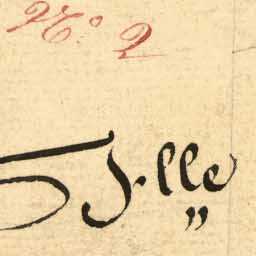 N.º 2
J.lle